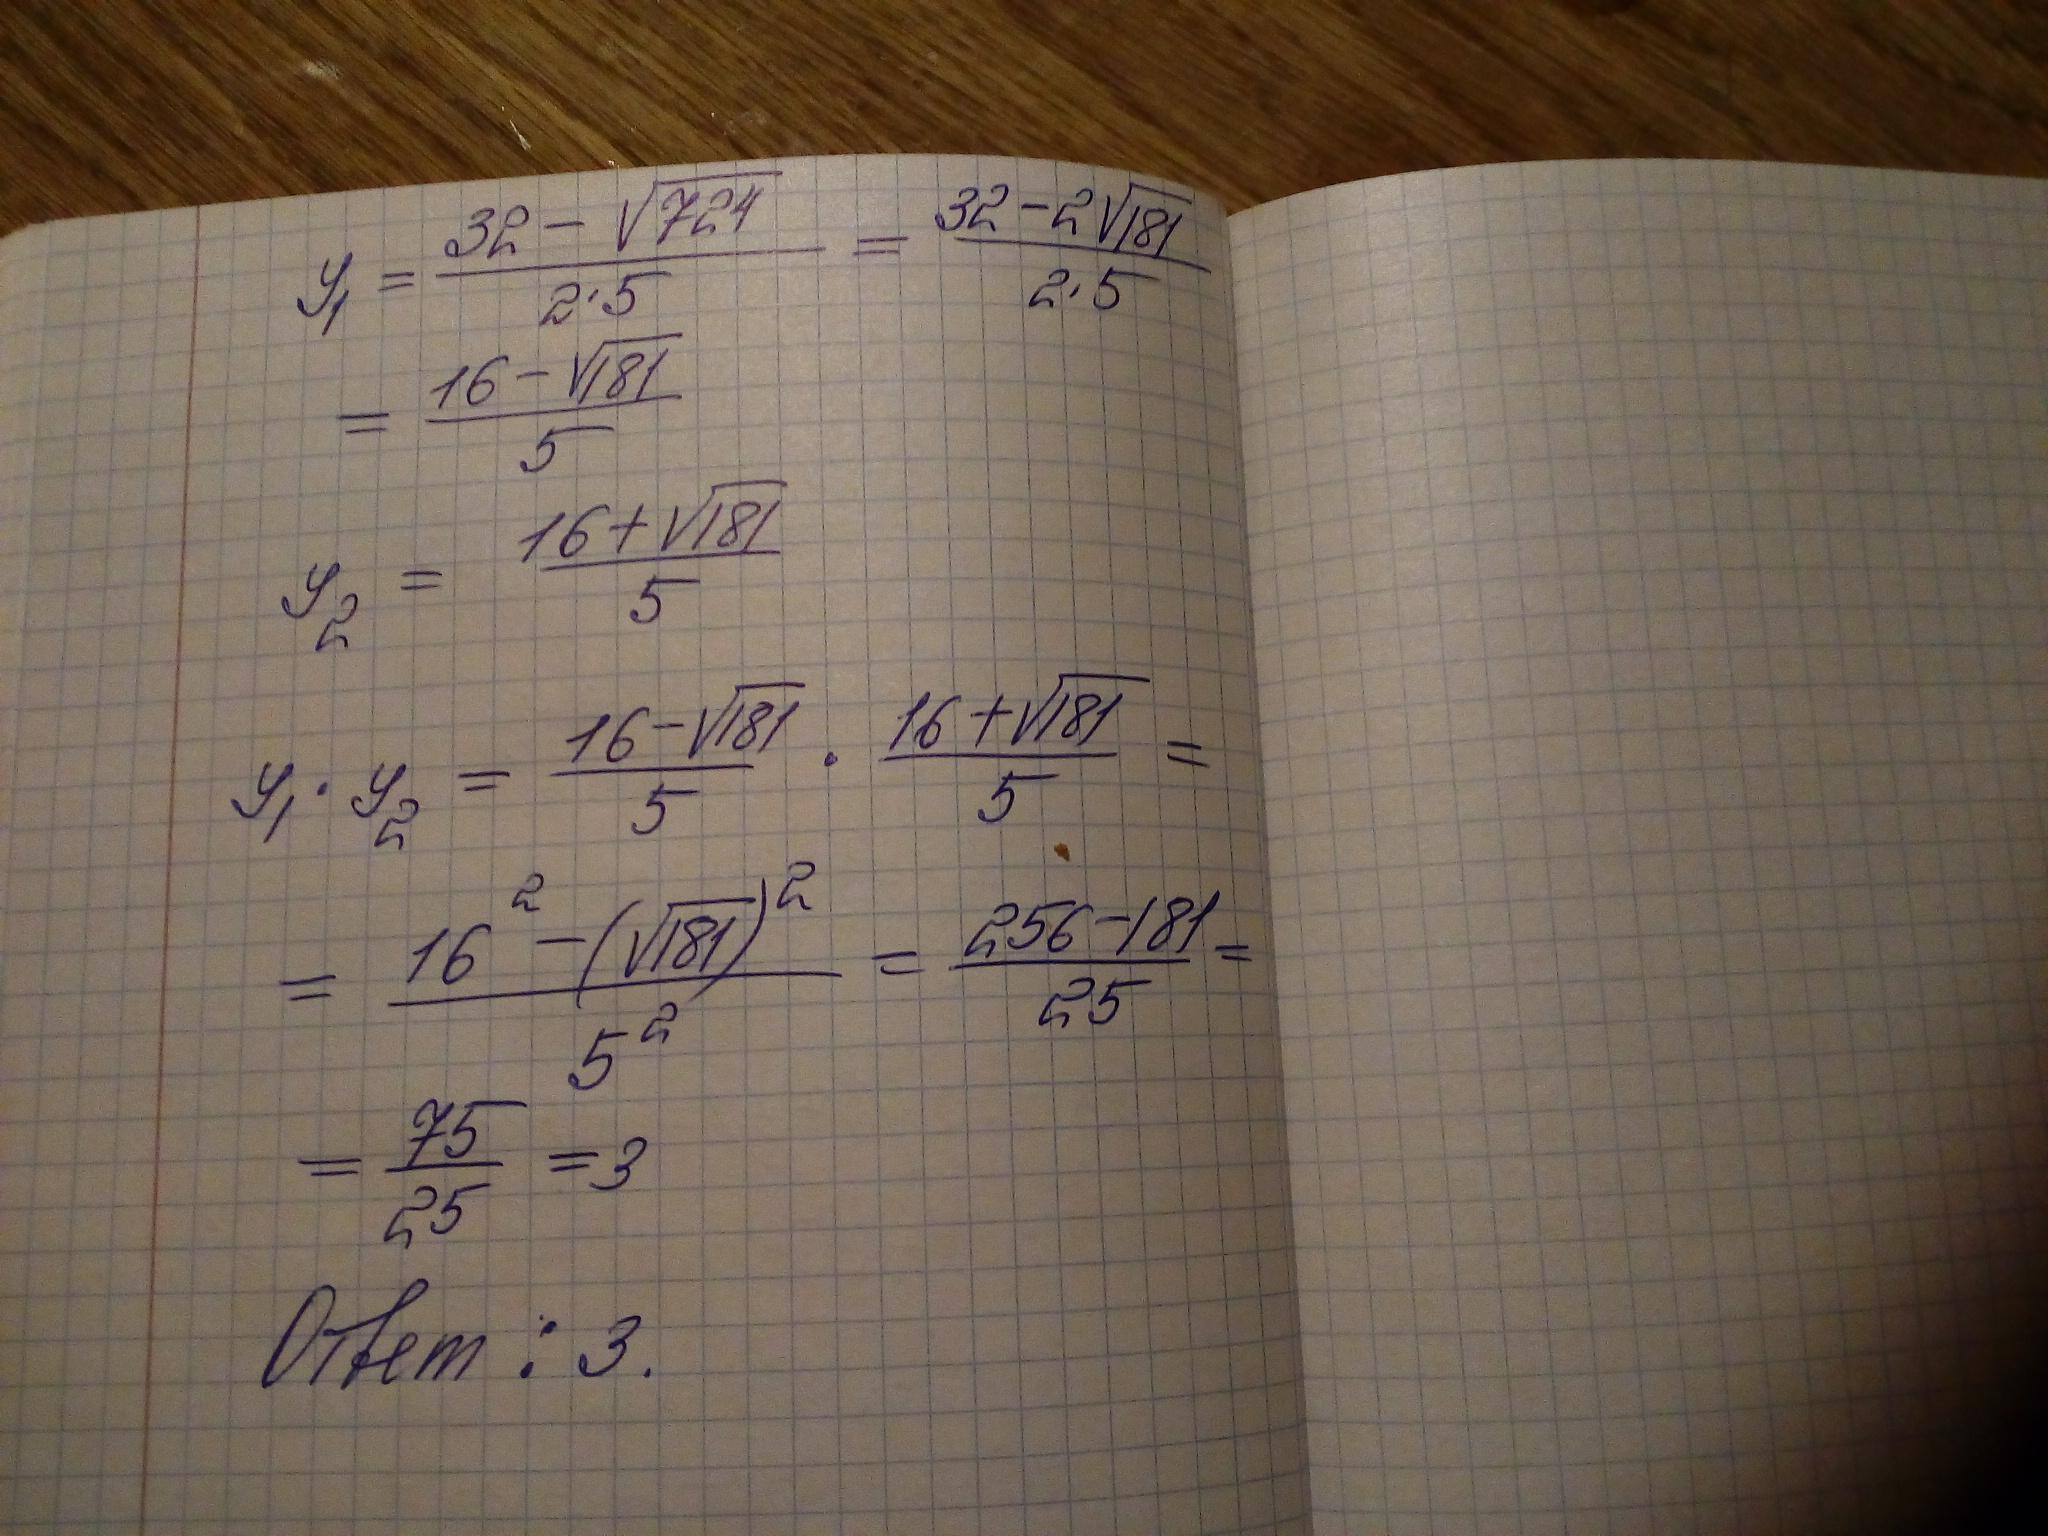 y₁ = (32 − √724)/(2·5) = (32 − 2√181)/(2·5)
= (16 − √181)/5
y₂ = (16 + √181)/5
y₁ · y₂ = (16 − √181)/5 · (16 + √181)/5 =
= (16² − (√181)²)/5² = (256 − 181)/25 =
= 75/25 = 3
Ответ : 3.